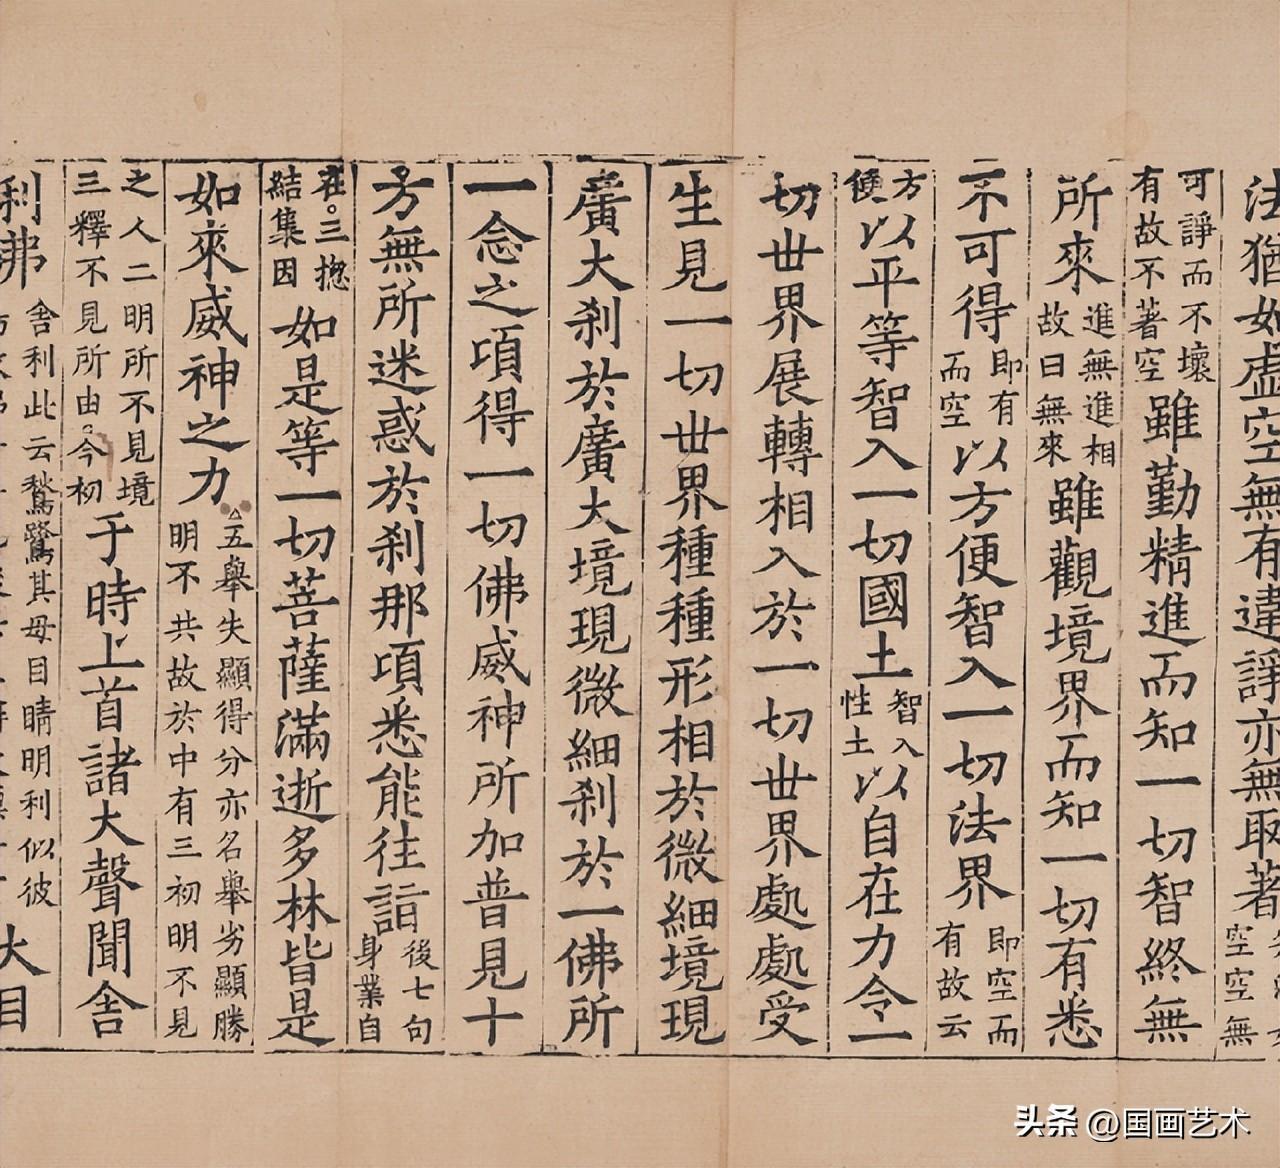 法猶如虛空無有違諍亦無取著空空無
可諍而不壞有故不著空雖勤精進而知一切智終無
所來進無進相故曰無來雖觀境界而知一切有悉
不可得即有而空以方便智入一切法界即空而有故云
方便以平等智入一切國土智入性土以自在力令一
切世界展轉相入於一切世界處處受
生見一切世界種種形相於微細境現
廣大刹於廣大境現微細刹於一佛所
一念之頃得一切佛威神所加普見十
方無所迷惑於刹那頃悉能往詣後七句身業自
在。三揔結集因如是等一切菩薩滿逝多林皆是
如來威神之力△五舉失顯得分亦名舉劣顯勝明不共故於中有三初明不見
之人二明所不見境三釋不見所由。今初于時上首諸大聲聞舍
利弗舍利此云鶖鷺其母目睛明利似彼大目
头条 @国画艺术